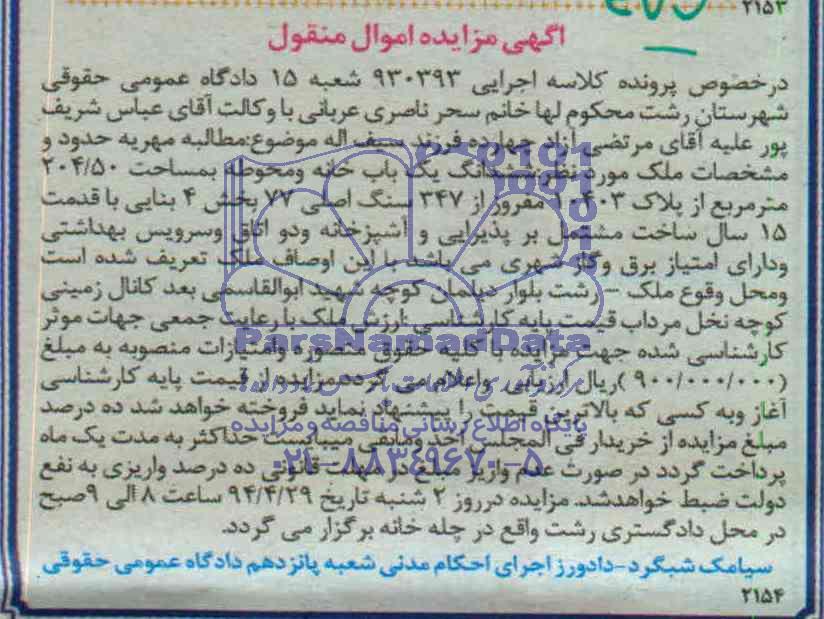 ۲۱۵۳
آگهی مزایده اموال منقول
درخصوص پرونده کلاسه اجرایی ۹۳۰۳۹۳ شعبه ۱۵ دادگاه عمومی حقوقی
شهرستان رشت محکوم لها خانم سحر ناصری عربانی با وکالت آقای عباس شریف
پور علیه آقای مرتضی آزاد چهارده فرزند سیف اله موضوع:مطالبه مهریه حدود و
مشخصات ملک مورد نظر:ششدانگ یک باب خانه ومحوطه بمساحت ۲۰۴/۵۰
مترمربع از پلاک ۱۰۴۰۳ مفروز از ۳۴۷ سنگ اصلی ۷۷ بخش ۴ بنایی با قدمت
۱۵ سال ساخت مشتمل بر پذیرایی و آشپزخانه ودو اتاق وسرویس بهداشتی
ودارای امتیاز برق وگاز شهری می باشد با این اوصاف ملک تعریف شده است
ومحل وقوع ملک – رشت بلوار دیلمان کوچه شهید ابوالقاسمی بعد کانال زمینی
کوچه نخل مرداب قیمت پایه کارشناسی :ارزش ملک با رعایت جمعی جهات موثر
ParsNamadData
کارشناسی شده جهت مزایده با کلیه حقوق متصوره وامتیازات منصوبه به مبلغ
(۹۰۰/۰۰۰/۰۰۰ )ریال ارزیابی واعلام می گردد مزایده از قیمت پایه کارشناسی
آغاز وبه کسی که بالاترین قیمت را پیشنهاد نماید فروخته خواهد شد ده درصد
پایگاه اطلاع رسانی مناقصه و مزایده
مبلغ مزایده از خریدار فی المجلس اخذ ومابقی میبایست حداکثر به مدت یک ماه
۰۲۱-۸۸۳۴۹۶۷۰-۵
پرداخت گردد در صورت عدم واریز مبلغ در مهلت قانونی ده درصد واریزی به نفع
دولت ضبط خواهدشد. مزایده درروز ۲ شنبه تاریخ ۹۴/۴/۲۹ ساعت ۸ الی ۹صبح
در محل دادگستری رشت واقع در چله خانه برگزار می گردد.
سیامک شبگرد-دادورز اجرای احکام مدنی شعبه پانزدهم دادگاه عمومی حقوقی
۲۱۵۴